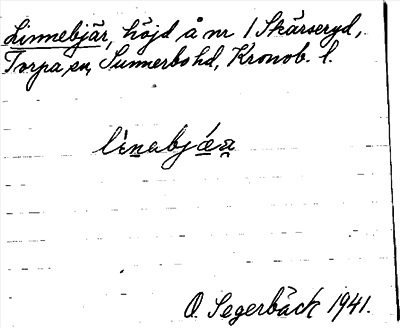 Linnebjär, höjd å nr 1 Skärseryd,
Torpa sn, Sunnerbo hd, Kronob. l.
lìnabjæ̀a
O. Segerbäck 1941.